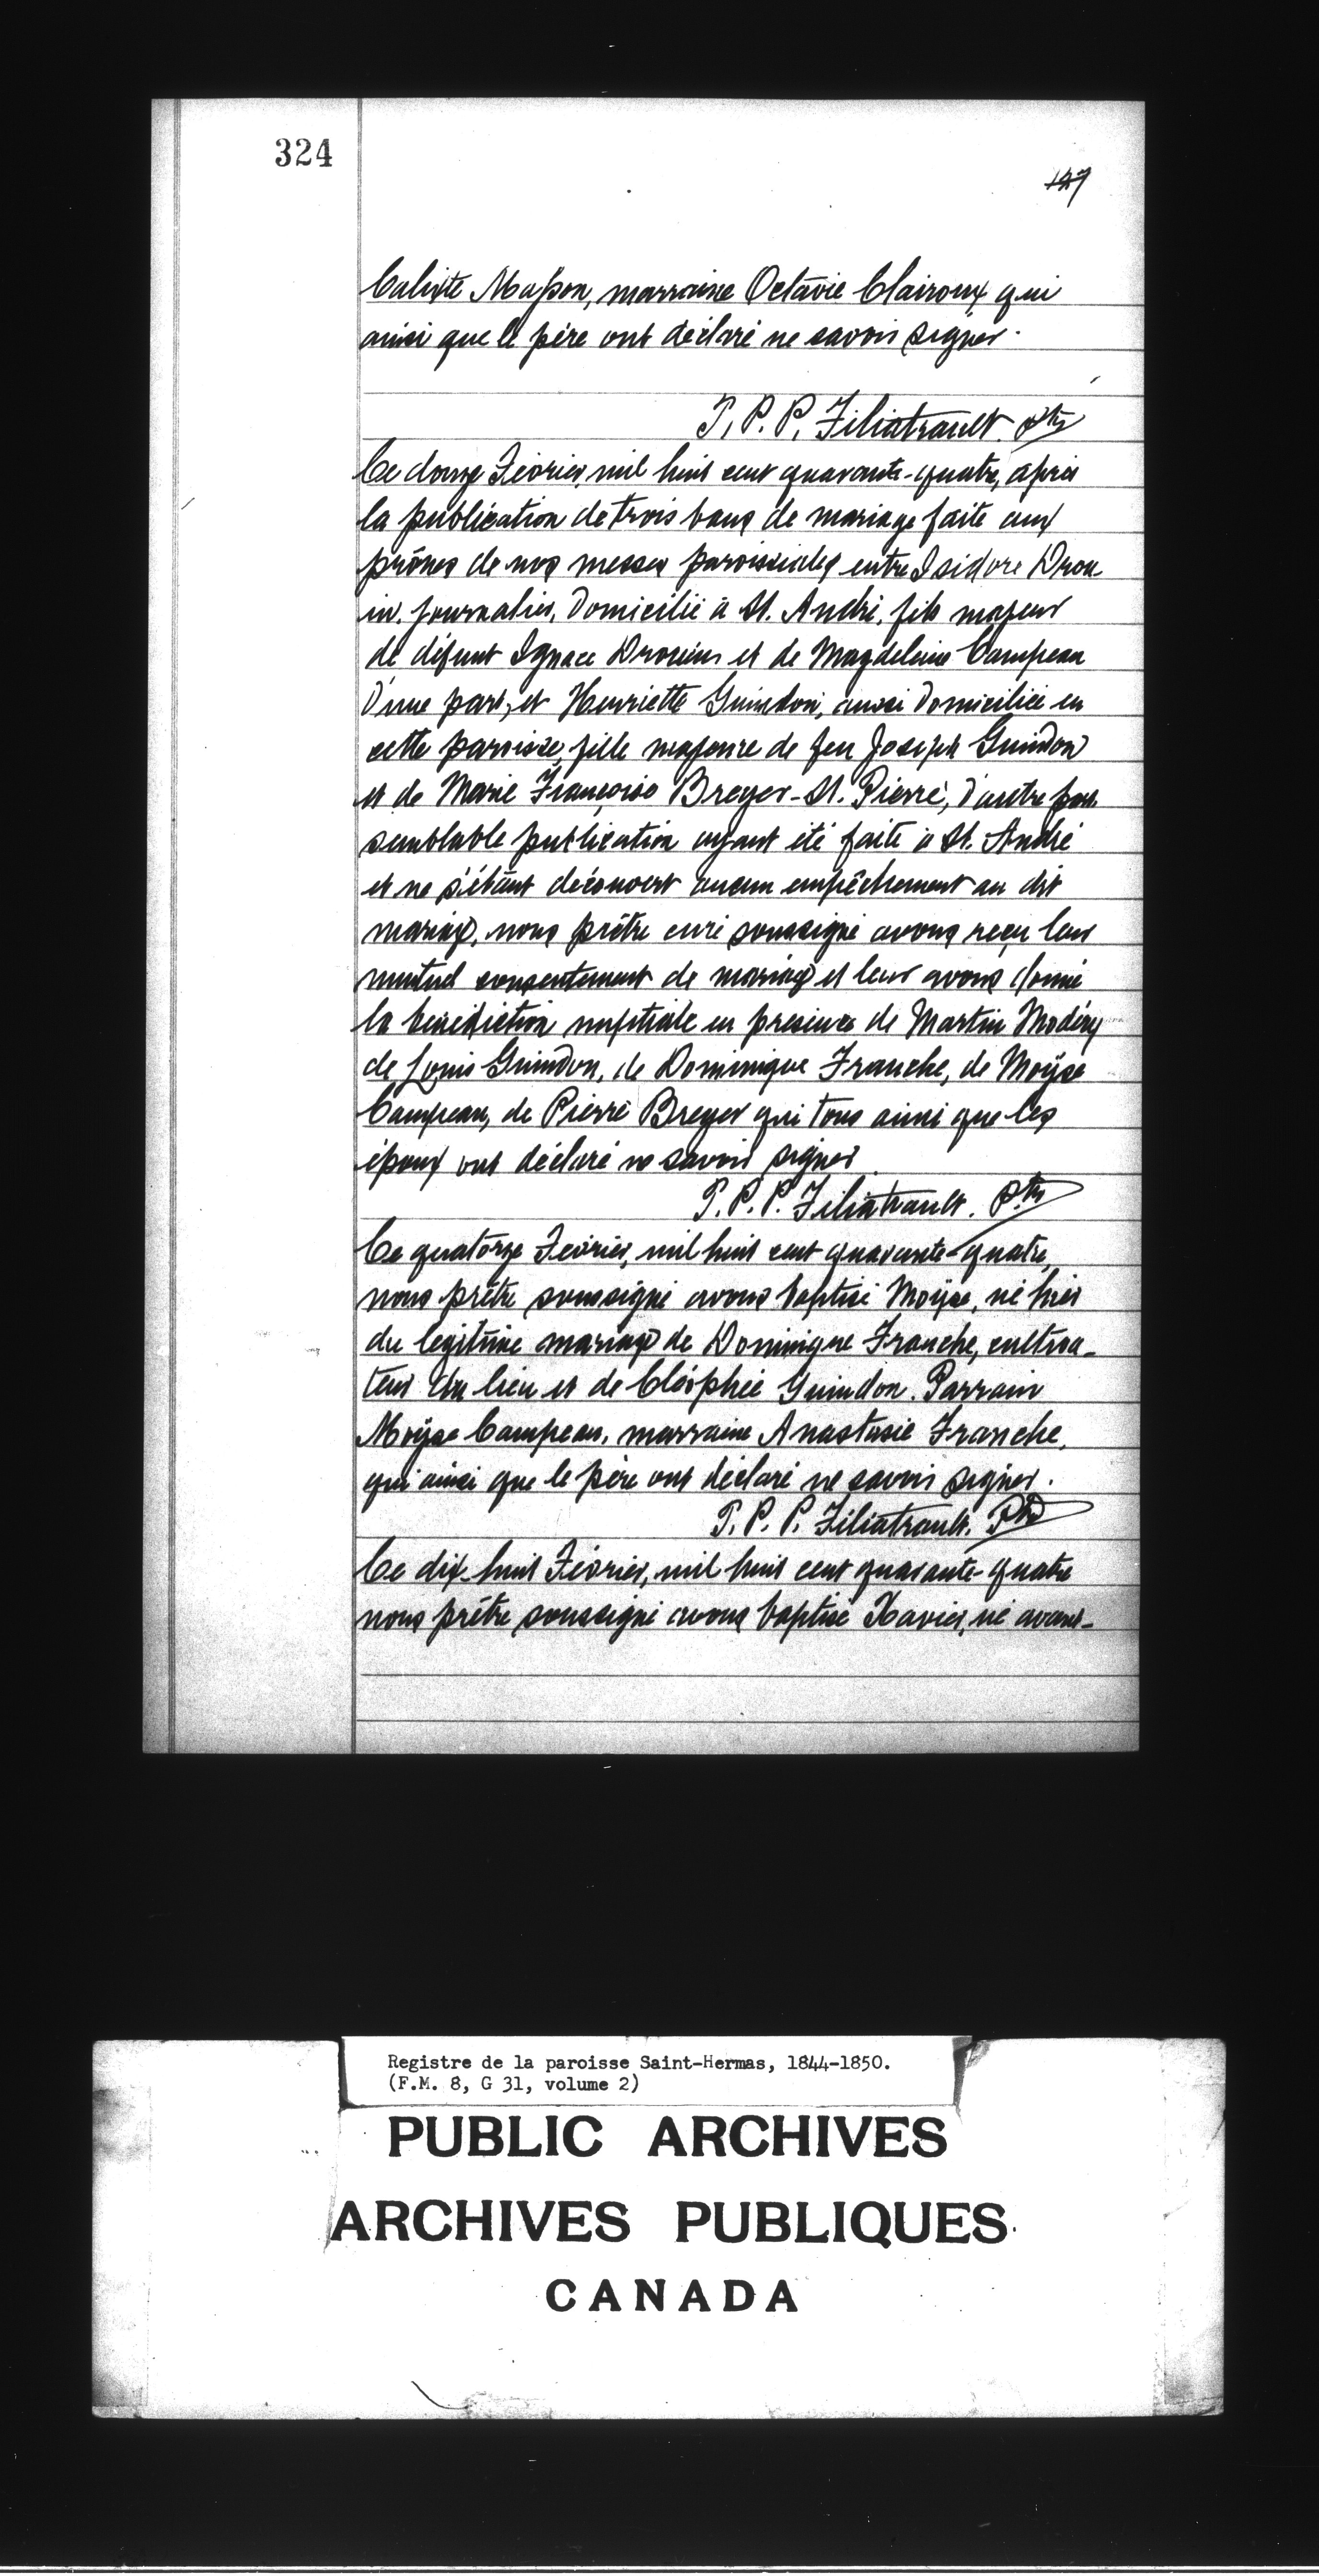 324
127
Calixte Masson, marraine Octavie Clairoux qui
ainsi que le père ont déclaré ne savoir signer.
T. P. P. Filiatrault. Ptre
Ce douze Février, mil huit cent quarante-quatre, après
la publication de trois bans de mariage faite aux
prônes de nos messes paroissiales entre Isidore Drou-
in, journalier, domicilié à St. André, fils majeur
de défunt Ignace Drouin et de Magdeleine Campeau
d'une part, et Henriette Guindon, aussi domiciliée en
cette paroisse, fille majeure de feu Joseph Guindon
et de Marie Françoise Breyer-St. Pierre, d'autre part
semblable publication ayant été faite à St. André
et ne s'étant découvert aucun empêchement au dit
mariage, nous prêtre curé soussigné avons reçu leur
mutuel consentement de mariage et leur avons donné
la bénédiction nuptiale en présence de Martin Modéry
de Louis Guindon, de Dominique Franche, de Moÿse
Campeau, de Pierre Breyer qui tous ainsi que les
époux ont déclaré ne savoir signer.
T. P. P. Filiatrault. Ptre
Ce quatorze Février, mil huit cent quarante-quatre,
nous prêtre soussigné avons baptisé Moÿse, né hier
du légitime mariage de Dominique Franche, cultiva-
teur du lieu et de Cléophée Guindon. Parrain
Moÿse Campeau, marraine Anastasie Franche,
qui ainsi que le père ont déclaré ne savoir signer.
T. P. P. Filiatrault. Ptre
Ce dix-huit Février, mil huit cent quarante-quatre
nous prêtre soussigné avons baptisé Xavier, né avant-
Registre de la paroisse Saint-Hermas, 1844-1850.
(F.M. 8, G 31, volume 2)
PUBLIC ARCHIVES
ARCHIVES PUBLIQUES
CANADA